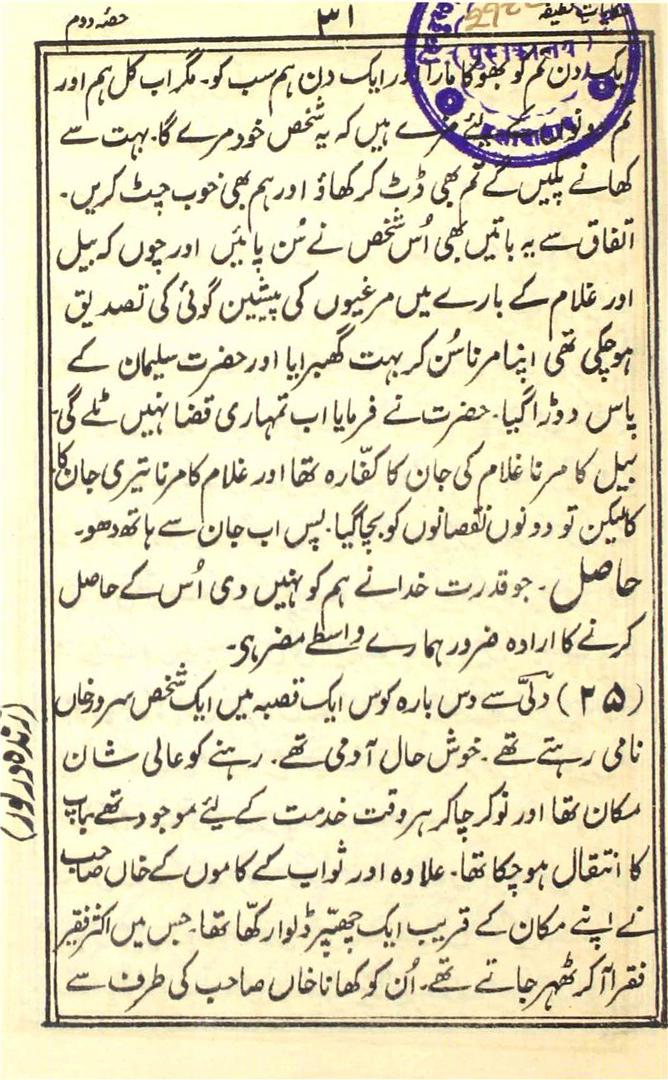 حکایات لطیفہ ۳۱ حصّہ دوم
ایک دن تم کو بھوکا مارا اور ایک دن ہم سب کو۔ مگر اب کل ہم اور
تم دونوں کے لئے مزے ہیں کہ یہ شخص خود مرے گا۔ بہت سے
کھانے پکیں گے تم بھی ڈٹ کر کھاؤ اور ہم بھی خوب چٹ کریں۔
اتفاق سے یہ باتیں بھی اُس شخص نے سُن پائیں اور چوں کہ بیل
اور غلام کے بارے میں مرغیوں کی پیشین گوئی کی تصدیق
ہوچکی تھی اپنا مرنا سُن کر بہت گھبرایا اور حضرت سلیمان کے
پاس دوڑا گیا۔ حضرت نے فرمایا اب تمہاری قضا نہیں ٹلے گی۔
بیل کا مرنا غلام کی جان کا کفّارہ تھا اور غلام کا مرنا تیری جان کا
کا لیکن تو دونوں نقصانوں کو بچا گیا۔ پس اب جان سے ہاتھ دھو۔
حاصل۔ جو قدرت خدا نے ہم کو نہیں دی اُس کے حاصل
کرنے کا ارادہ ضرور ہمارے واسطے مضر ہی۔
(۲۵) دلّی سے دس بارہ کوس ایک قصبہ میں ایک شخص سرور خاں
نامی رہتے تھے۔ خوش حال آدمی تھے۔ رہنے کو عالی شان
مکان تھا اور نوکر چاکر ہر وقت خدمت کے لئے موجود تھے باپ
کا انتقال ہوچکا تھا۔ علاوہ اور ثواب کے کاموں کے خاں صاحب
نے اپنے مکان کے قریب ایک چھپّر ڈلوا رکھّا تھا۔ جس میں اکثر فقیر
فقرا آ کر ٹھہر جاتے تھے۔ اُن کو کھانا خاں صاحب کی طرف سے
पुस्तकालय